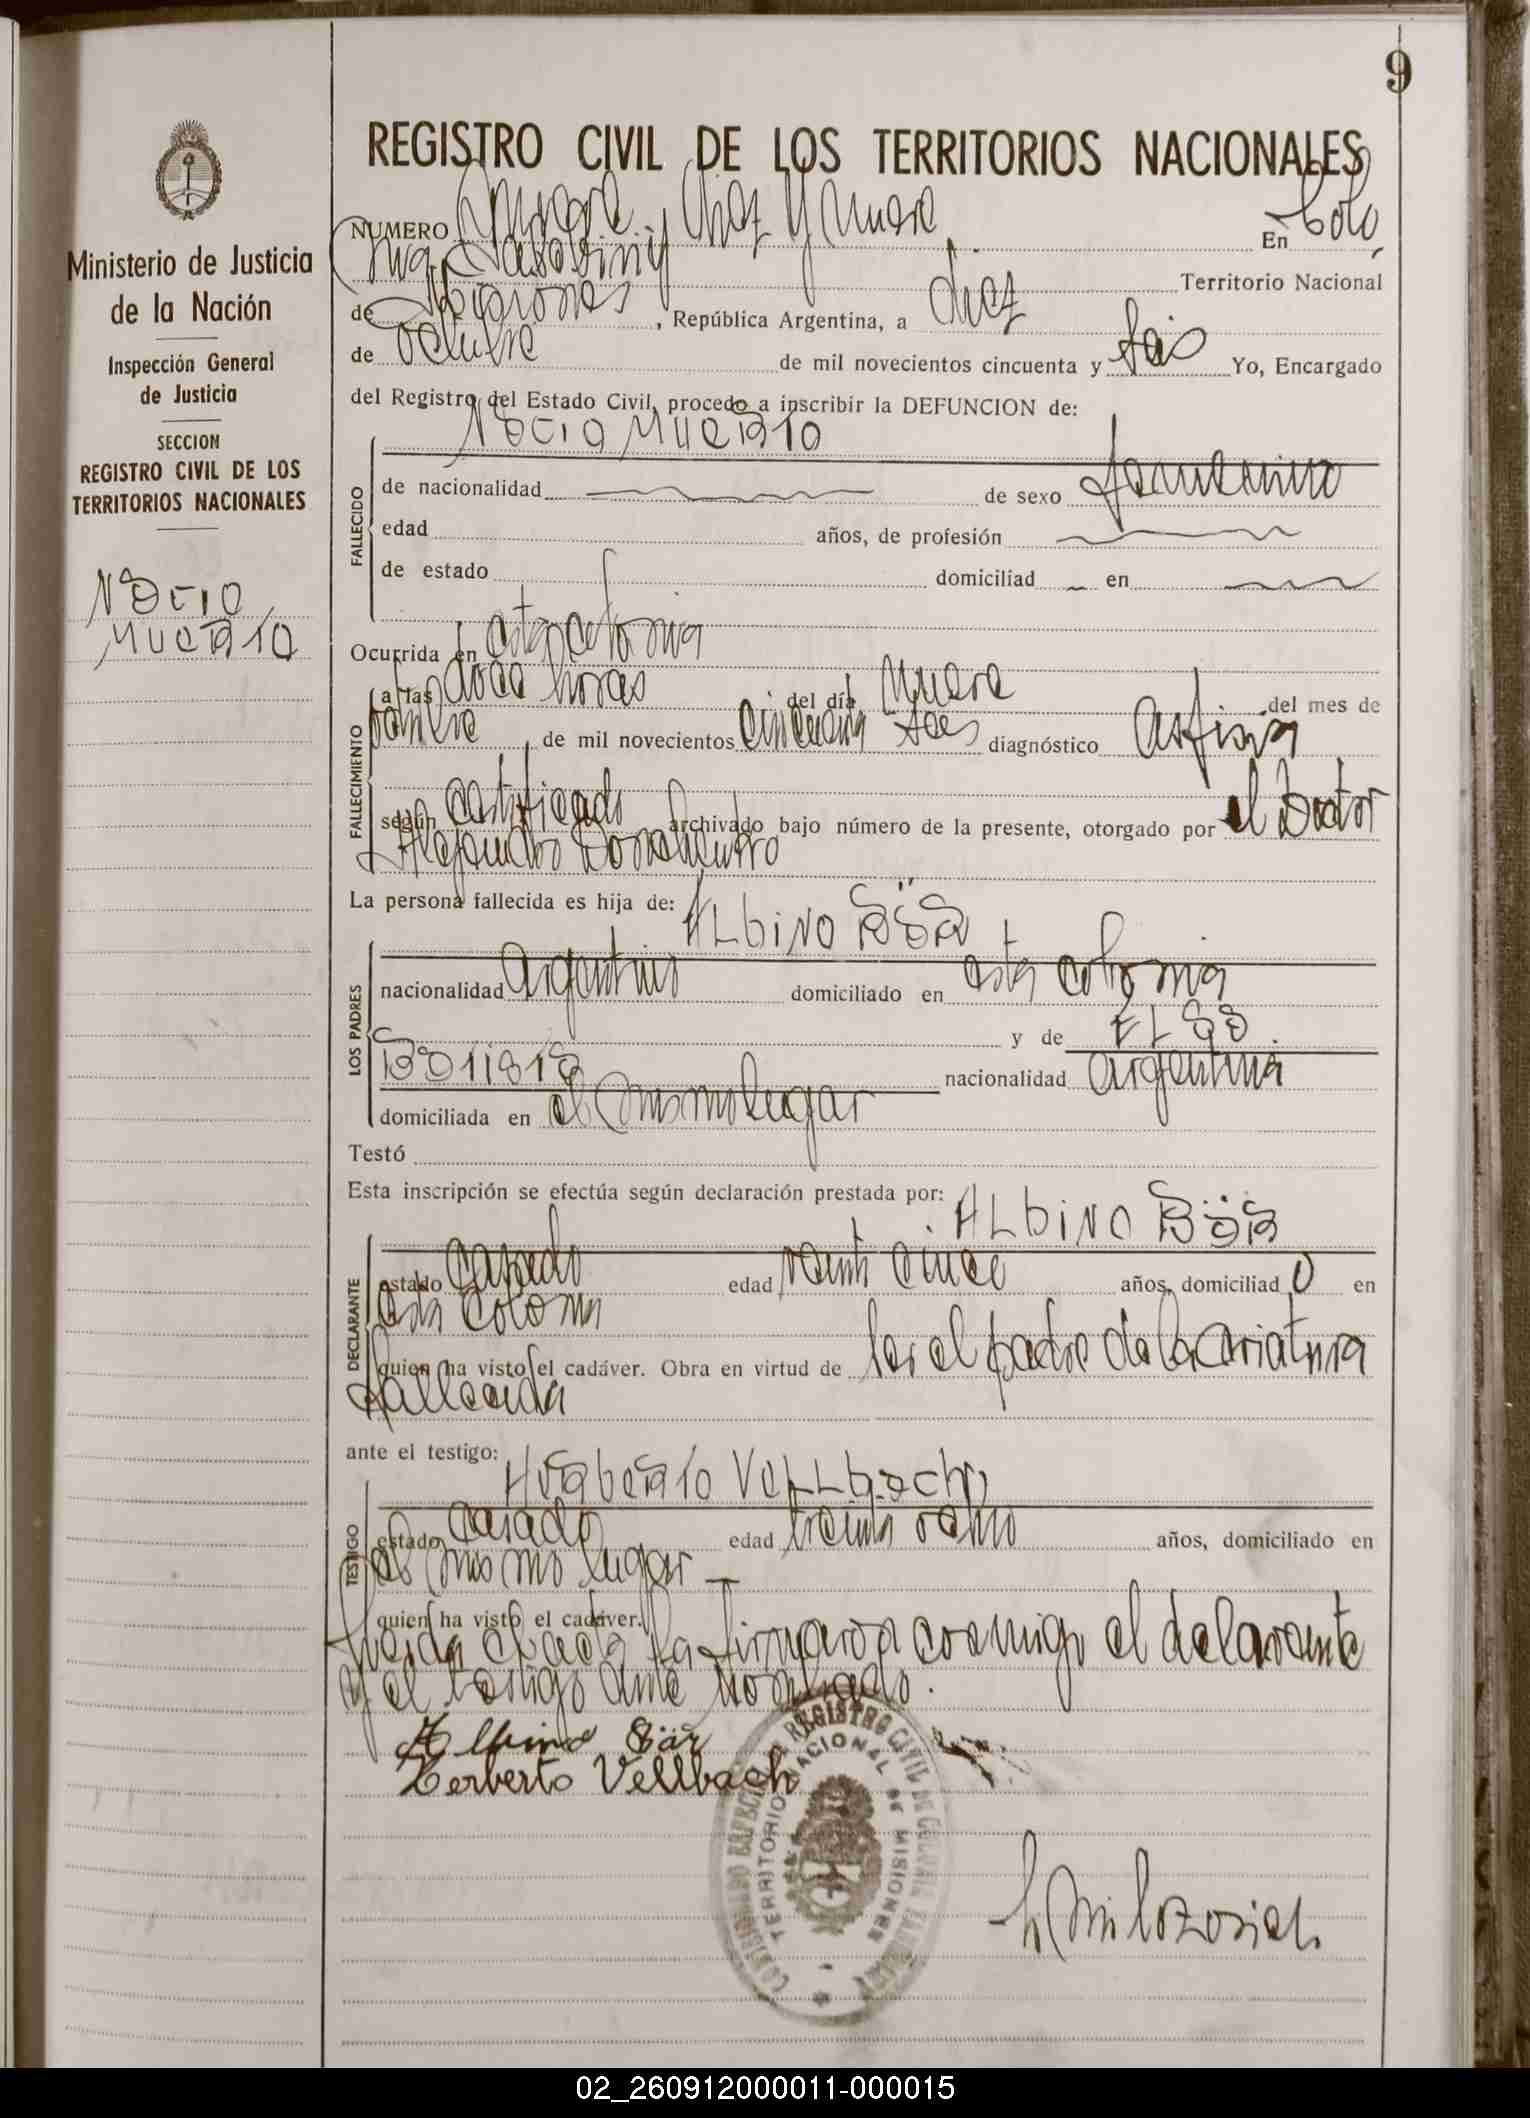 9
REGISTRO CIVIL DE LOS TERRITORIOS NACIONALES
Ministerio de Justicia
de la Nación
Inspección General
de Justicia
SECCION
REGISTRO CIVIL DE LOS
TERRITORIOS NACIONALES
NACIO
MUERTO
NUMERO Diez y Nueve En Colo
nia Territorio Nacional
de Misiones, República Argentina, a diez
de octubre de mil novecientos cincuenta y seis Yo, Encargado
del Registro del Estado Civil, procedo a inscribir la DEFUNCION de:
NACIO MUERTO
FALLECIDO
de nacionalidad de sexo femenino
edad años, de profesión
de estado domiciliad en
Ocurrida en esta colonia
FALLECIMIENTO
a las doce horas del día nueve del mes de
octubre de mil novecientos cincuenta seis diagnóstico asfixia
según certificado archivado bajo número de la presente, otorgado por el Doctor
Alejandro
La persona fallecida es hija de: ALbiNO BÄR
LOS PADRES
nacionalidad argentino domiciliado en esta colonia
y de ELSA
nacionalidad argentina
domiciliada en el mismo lugar
Testó
Esta inscripción se efectúa según declaración prestada por: ALbiNO BÄR
DECLARANTE
estado casado edad veinti cinco años, domiciliad o en
esta colonia
quien ha visto el cadáver. Obra en virtud de ser el padre de la criatura
fallecida
ante el testigo: HERbERTO VELLbach
TESTIGO
estado casado edad treinta ocho años, domiciliado en
el mismo lugar
quien ha visto el cadáver.
Leida el acta la firmaron conmigo el declarante
y el testigo ante nombrado.
Albino Bär
Herberto Vellbach
REGISTRO CIVIL DE COLONIA
TERRITORIO NACIONAL DE MISIONES
02_260912000011-000015